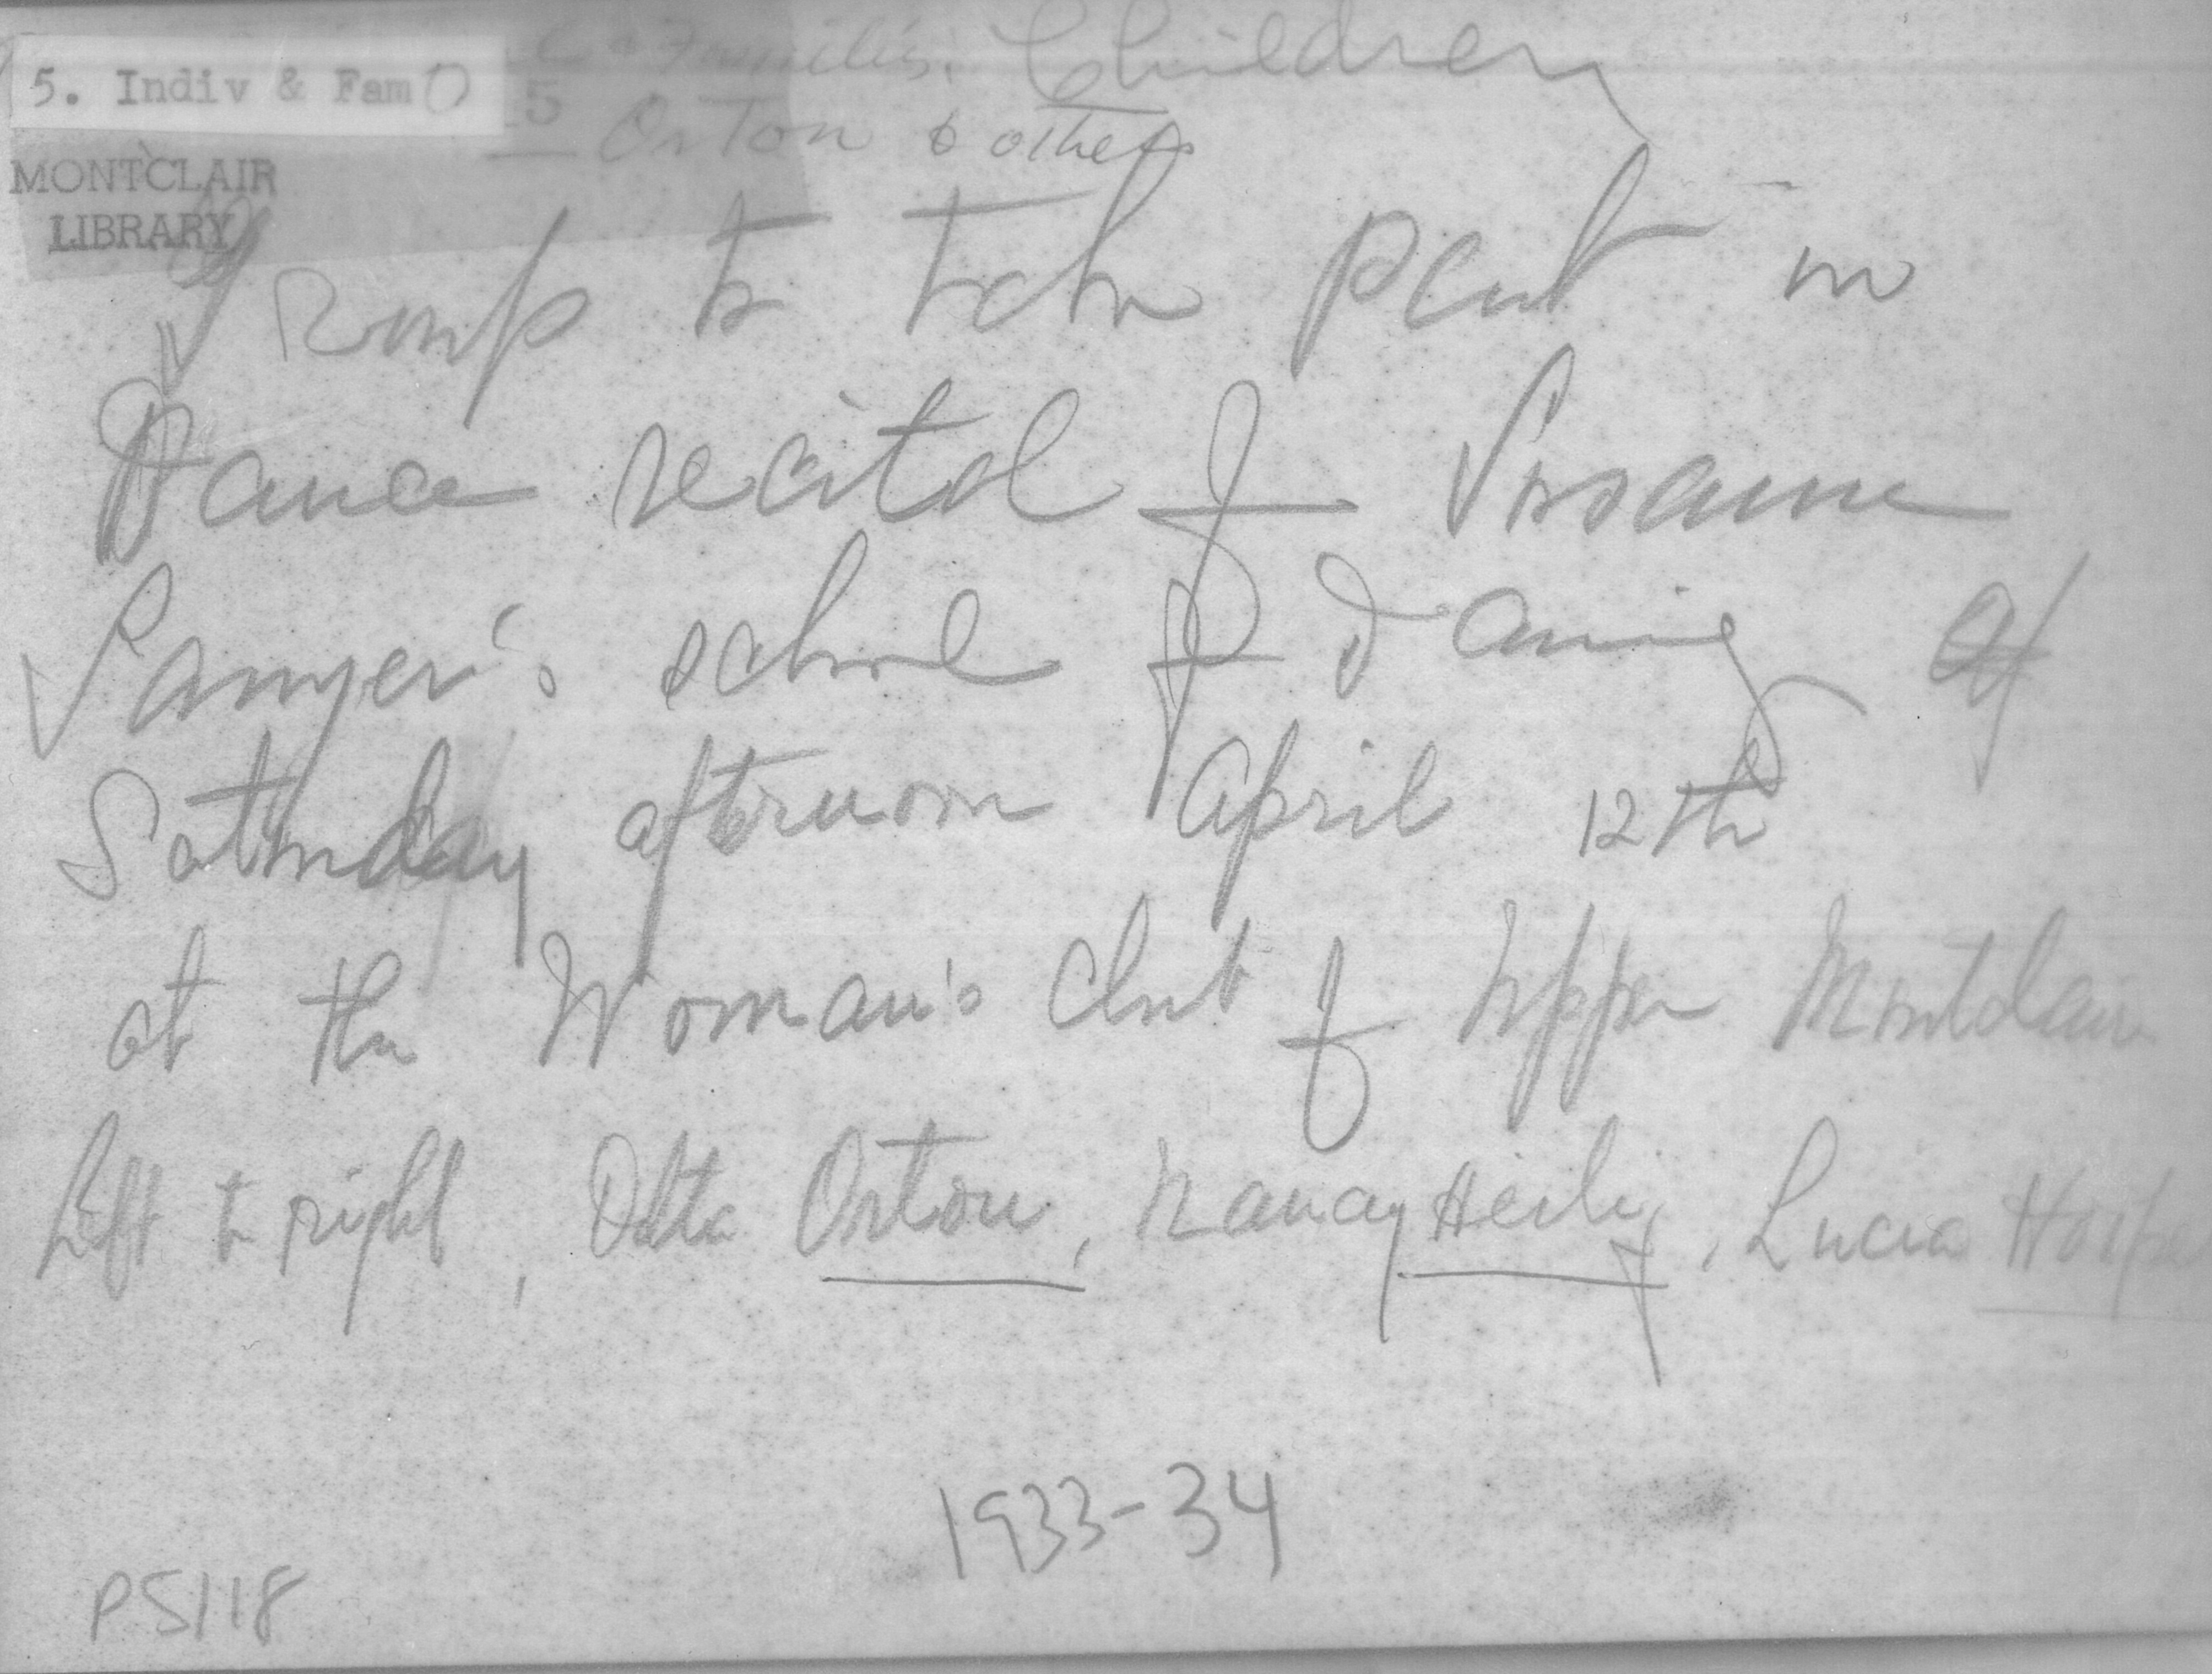 5. Indiv & Fam O
Families: Children
5
Orton & others
MONTCLAIR
LIBRARY
Group to take part in
Dance recital of
Sawyer's school of dancing of
Saturday afternoon April 12th
at the Woman's Club of Upper Montclair
Left to right, Orton, Nancy, Lucia
1933-34
P5118